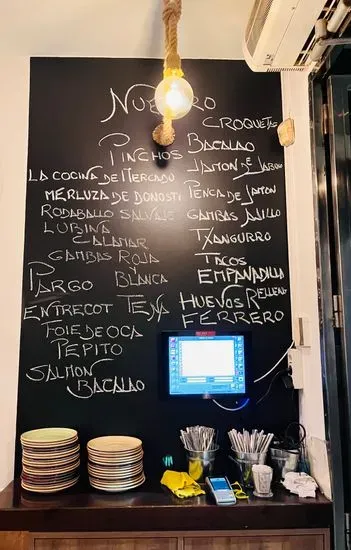 NUESTRO
PINCHOS
LA COCINA DE MERCADO
MERLUZA DE DONOSTI
RODABALLO SALVAJE
LUBINA
CALAMAR
GAMBAS ROJA
Y BLANCA
PARGO
ENTRECOT TEÑA
FOIE DE OCA
PEPITO
SALMON
BACALAO
CROQUETAS
BACALAO
JAMON DE JABUGO
PENCA DE JAMON
GAMBAS AJILLO
TXANGURRO
TACOS
EMPANADILLA
HUEVOS RELLENO
FERRERO